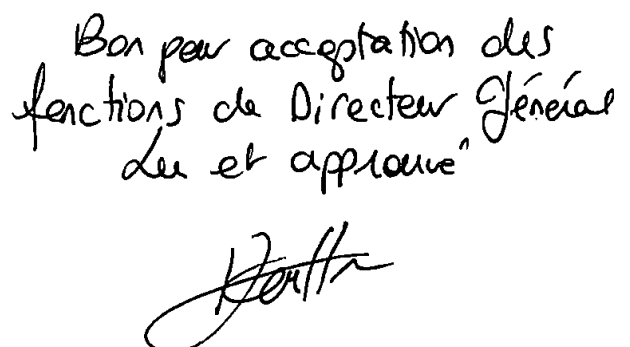 Bon pour acceptation des
fonctions de Directeur Général
Lu et approuvé